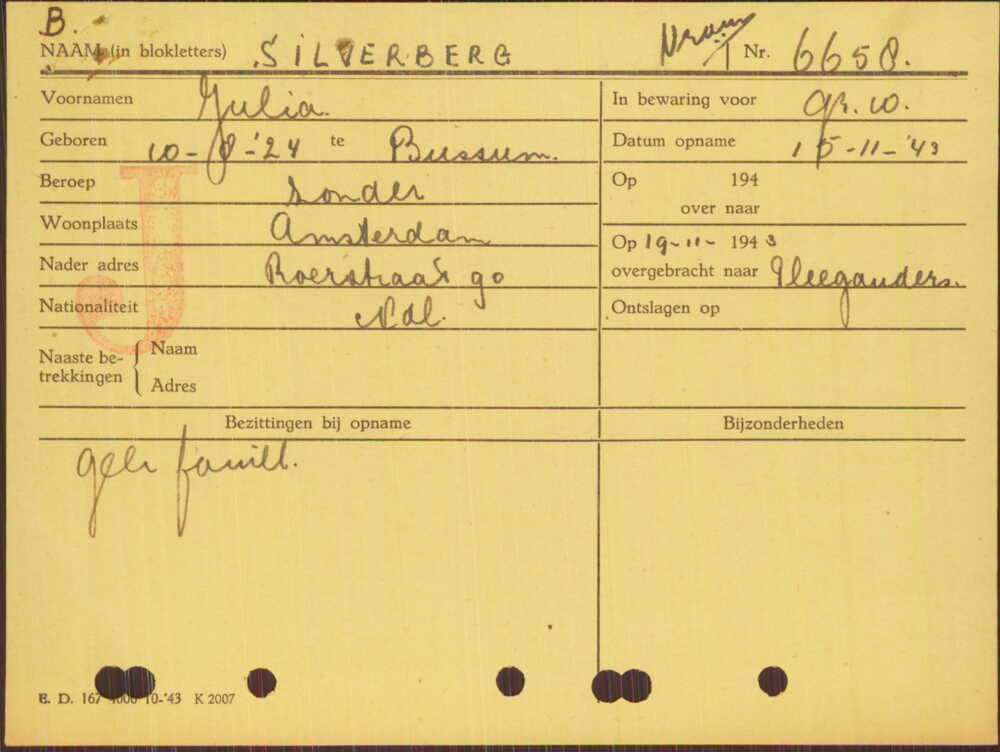 B.
NAAM (in blokletters) SILVERBERG Vrouw Nr. 6658.
Voornamen Julia. In bewaring voor gr. 10.
Geboren 10-8-'24 te Bussum. Datum opname 15-11-'43
Beroep zonder Op 194
over naar
Woonplaats Amsterdam
Op 19-11- 1943
Nader adres Roerstraat 90 overgebracht naar
Nationaliteit Ndl. Ontslagen op
J
Naaste be-
trekkingen { Naam
Adres
Bezittingen bij opname Bijzonderheden
E. D. 167 4000 10-'43 K 2007